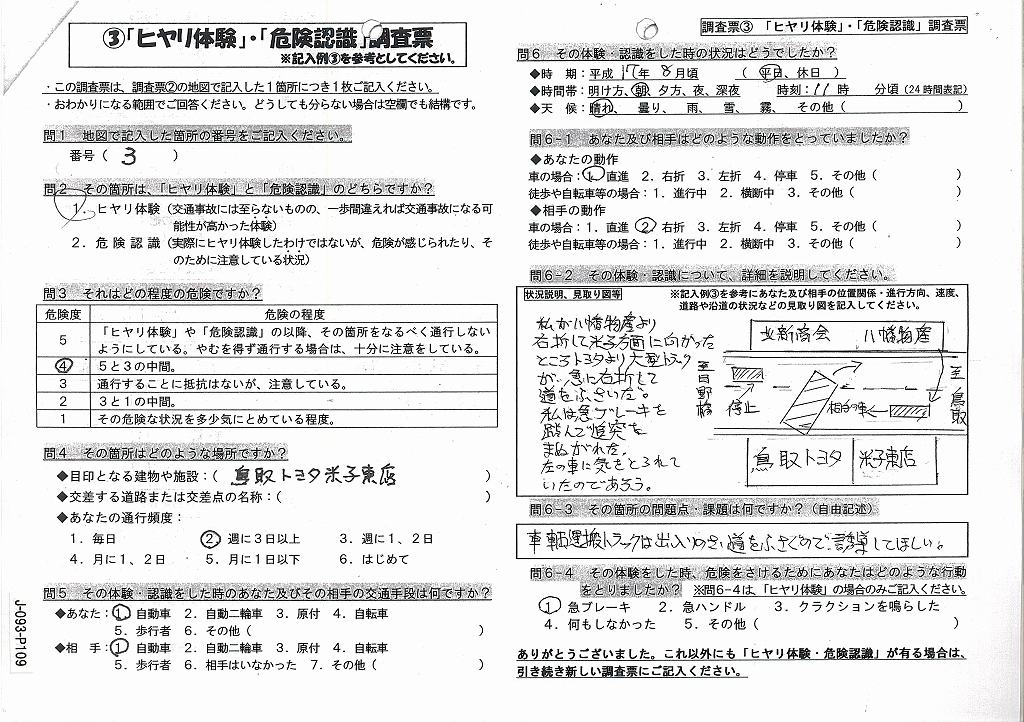 ③「ヒヤリ体験」・「危険認識」調査票
※記入例③を参考としてください。
・この調査票は、調査票②の地図で記入した1箇所につき1枚ご記入ください。
・おわかりになる範囲でご回答ください。どうしても分らない場合は空欄でも結構です。
問1 地図で記入した箇所の番号をご記入ください。
番号(3)
問2 その箇所は、「ヒヤリ体験」と「危険認識」のどちらですか?
1. ヒヤリ体験(交通事故には至らないものの、一歩間違えれば交通事故になる可
能性が高かった体験)
2. 危険認識(実際にヒヤリ体験したわけではないが、危険が感じられたり、そ
のために注意している状況)
問3 それはどの程度の危険ですか?
危険度 危険の程度
5 「ヒヤリ体験」や「危険認識」の以降、その箇所をなるべく通行しない
ようにしている。やむを得ず通行する場合は、十分に注意をしている。
④ 5と3の中間。
3 通行することに抵抗はないが、注意している。
2 3と1の中間。
1 その危険な状況を多少気にとめている程度。
問4 その箇所はどのような場所ですか?
◆目印となる建物や施設:(鳥取トヨタ米子東店)
◆交差する道路または交差点の名称:( )
◆あなたの通行頻度:
1. 毎日 ② 週に3日以上 3. 週に1、2日
4. 月に1、2日 5. 月に1日以下 6. はじめて
問5 その体験・認識をした時のあなた及びその相手の交通手段は何ですか?
◆あなた:① 自動車 2. 自動二輪車 3. 原付 4. 自転車
5. 歩行者 6. その他( )
◆相 手:① 自動車 2. 自動二輪車 3. 原付 4. 自転車
5. 歩行者 6. 相手はいなかった 7. その他( )
J-093-P109
調査票③ 「ヒヤリ体験」・「危険認識」調査票
問6 その体験・認識をした時の状況はどうでしたか?
◆時 期:平成17年8月頃 (平日、休日)
◆時間帯:明け方、朝、夕方、夜、深夜 時刻:11時 分頃(24時間表記)
◆天 候:晴れ、曇り、雨、雪、霧、その他( )
問6-1 あなた及び相手はどのような動作をとっていましたか?
◆あなたの動作
車の場合:1. 直進 2. 右折 3. 左折 4. 停車 5. その他( )
徒歩や自転車等の場合:1. 進行中 2. 横断中 3. その他( )
◆相手の動作
車の場合:1. 直進 ② 右折 3. 左折 4. 停車 5. その他( )
徒歩や自転車等の場合:1. 進行中 2. 横断中 3. その他( )
問6-2 その体験・認識について、詳細を説明してください。
状況説明、見取り図等
※記入例③を参考にあなた及び相手の位置関係・進行方向、速度、
道路や沿道の状況などの見取り図を記入してください。
私が八幡物産より
右折して米子方面に向かった
ところトヨタより大型トラック
が、急に右折して
道をふさいだ。
私は急ブレーキを
踏んで追突を
まぬがれた。
左の車に気をとられて
いたのであろう。
北新商会 八幡物産
至日野橋
停止
相手の車
至鳥取
鳥取トヨタ 米子東店
問6-3 その箇所の問題点・課題は何ですか?(自由記述)
車輌運搬トラックは出入りのさい道をふさぐので、誘導してほしい。
問6-4 その体験をした時、危険をさけるためにあなたはどのような行動
をとりましたか? ※問6-4は、「ヒヤリ体験」の場合のみご記入ください。
① 急ブレーキ 2. 急ハンドル 3. クラクションを鳴らした
4. 何もしなかった 5. その他( )
ありがとうございました。これ以外にも「ヒヤリ体験・危険認識」が有る場合は、
引き続き新しい調査票にご記入ください。